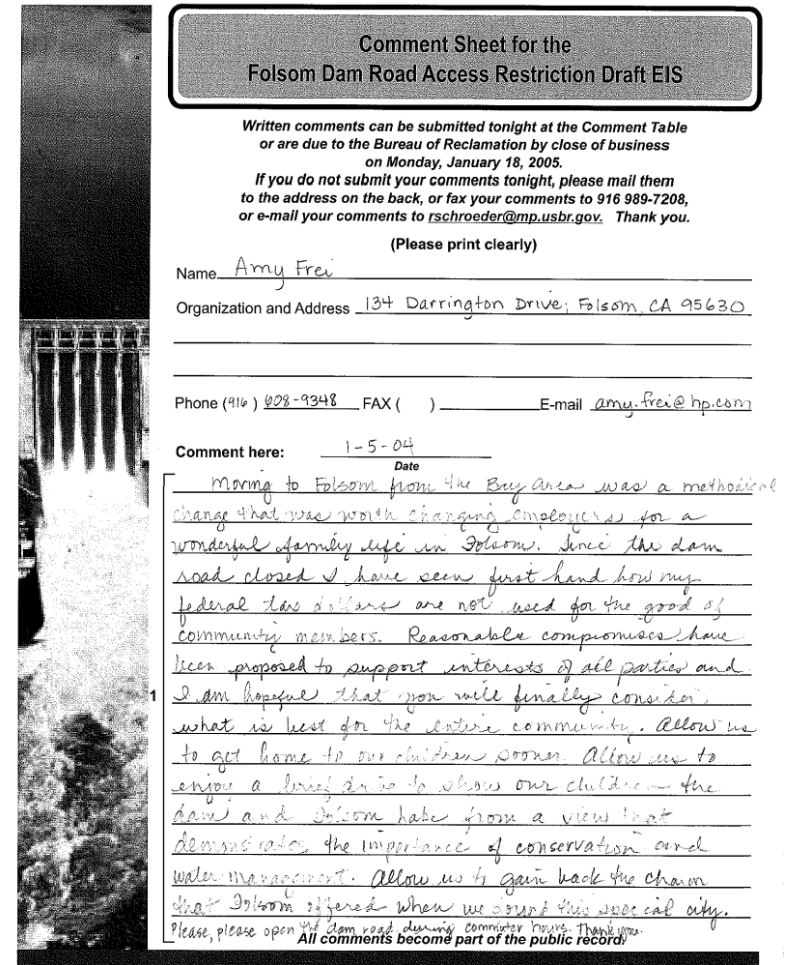 Comment Sheet for the
Folsom Dam Road Access Restriction Draft EIS
Written comments can be submitted tonight at the Comment Table
or are due to the Bureau of Reclamation by close of business
on Monday, January 18, 2005.
If you do not submit your comments tonight, please mail them
to the address on the back, or fax your comments to 916 989-7208,
or e-mail your comments to rschroeder@mp.usbr.gov. Thank you.
(Please print clearly)
Name Amy Frei
Organization and Address 134 Darrington Drive; Folsom, CA 95630
Phone (916) 608-9348 FAX ( ) E-mail amy.frei@hp.com
Comment here: 1-5-04
Date
Moving to Folsom from the Bay Area was a methodical
change that was worth changing employers for a
wonderful family life in Folsom. Since the dam
road closed I have seen first hand how my
federal tax dollars are not used for the good of
community members. Reasonable compromises have
been proposed to support interests of all parties and
1 I am hopeful that you will finally consider
what is best for the entire community. Allow us
to get home to our children sooner. Allow us to
enjoy a brief drive to show our children the
dam and Folsom Lake from a view that
demonstrates the importance of conservation and
water management. Allow us to gain back the charm
that Folsom offered when we found this special city.
Please, please open the dam road during commuter hours. Thank you.
All comments become part of the public record.